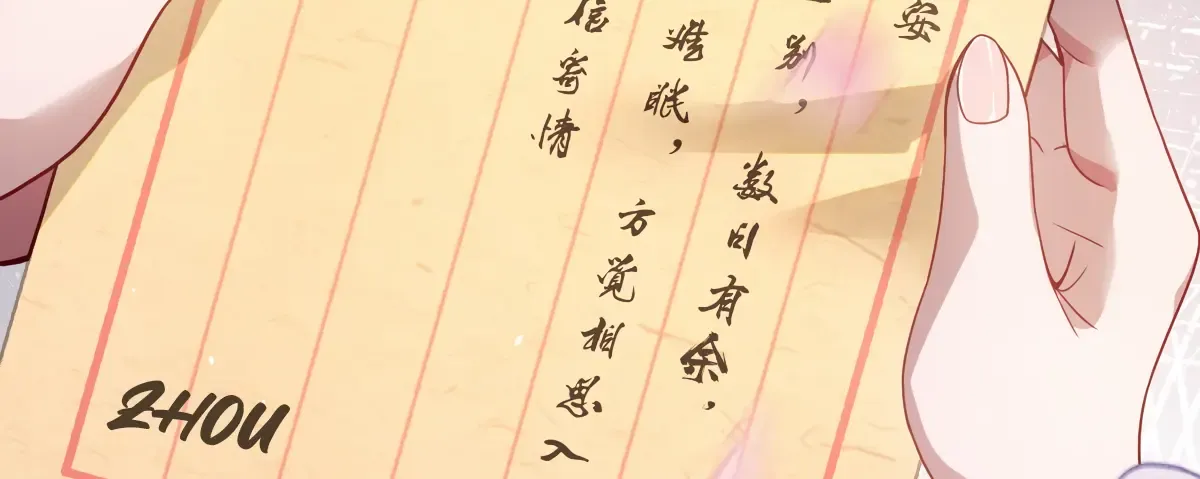 安
别，数日有余，
难眠，方觉相思入
信寄情
ZHOU